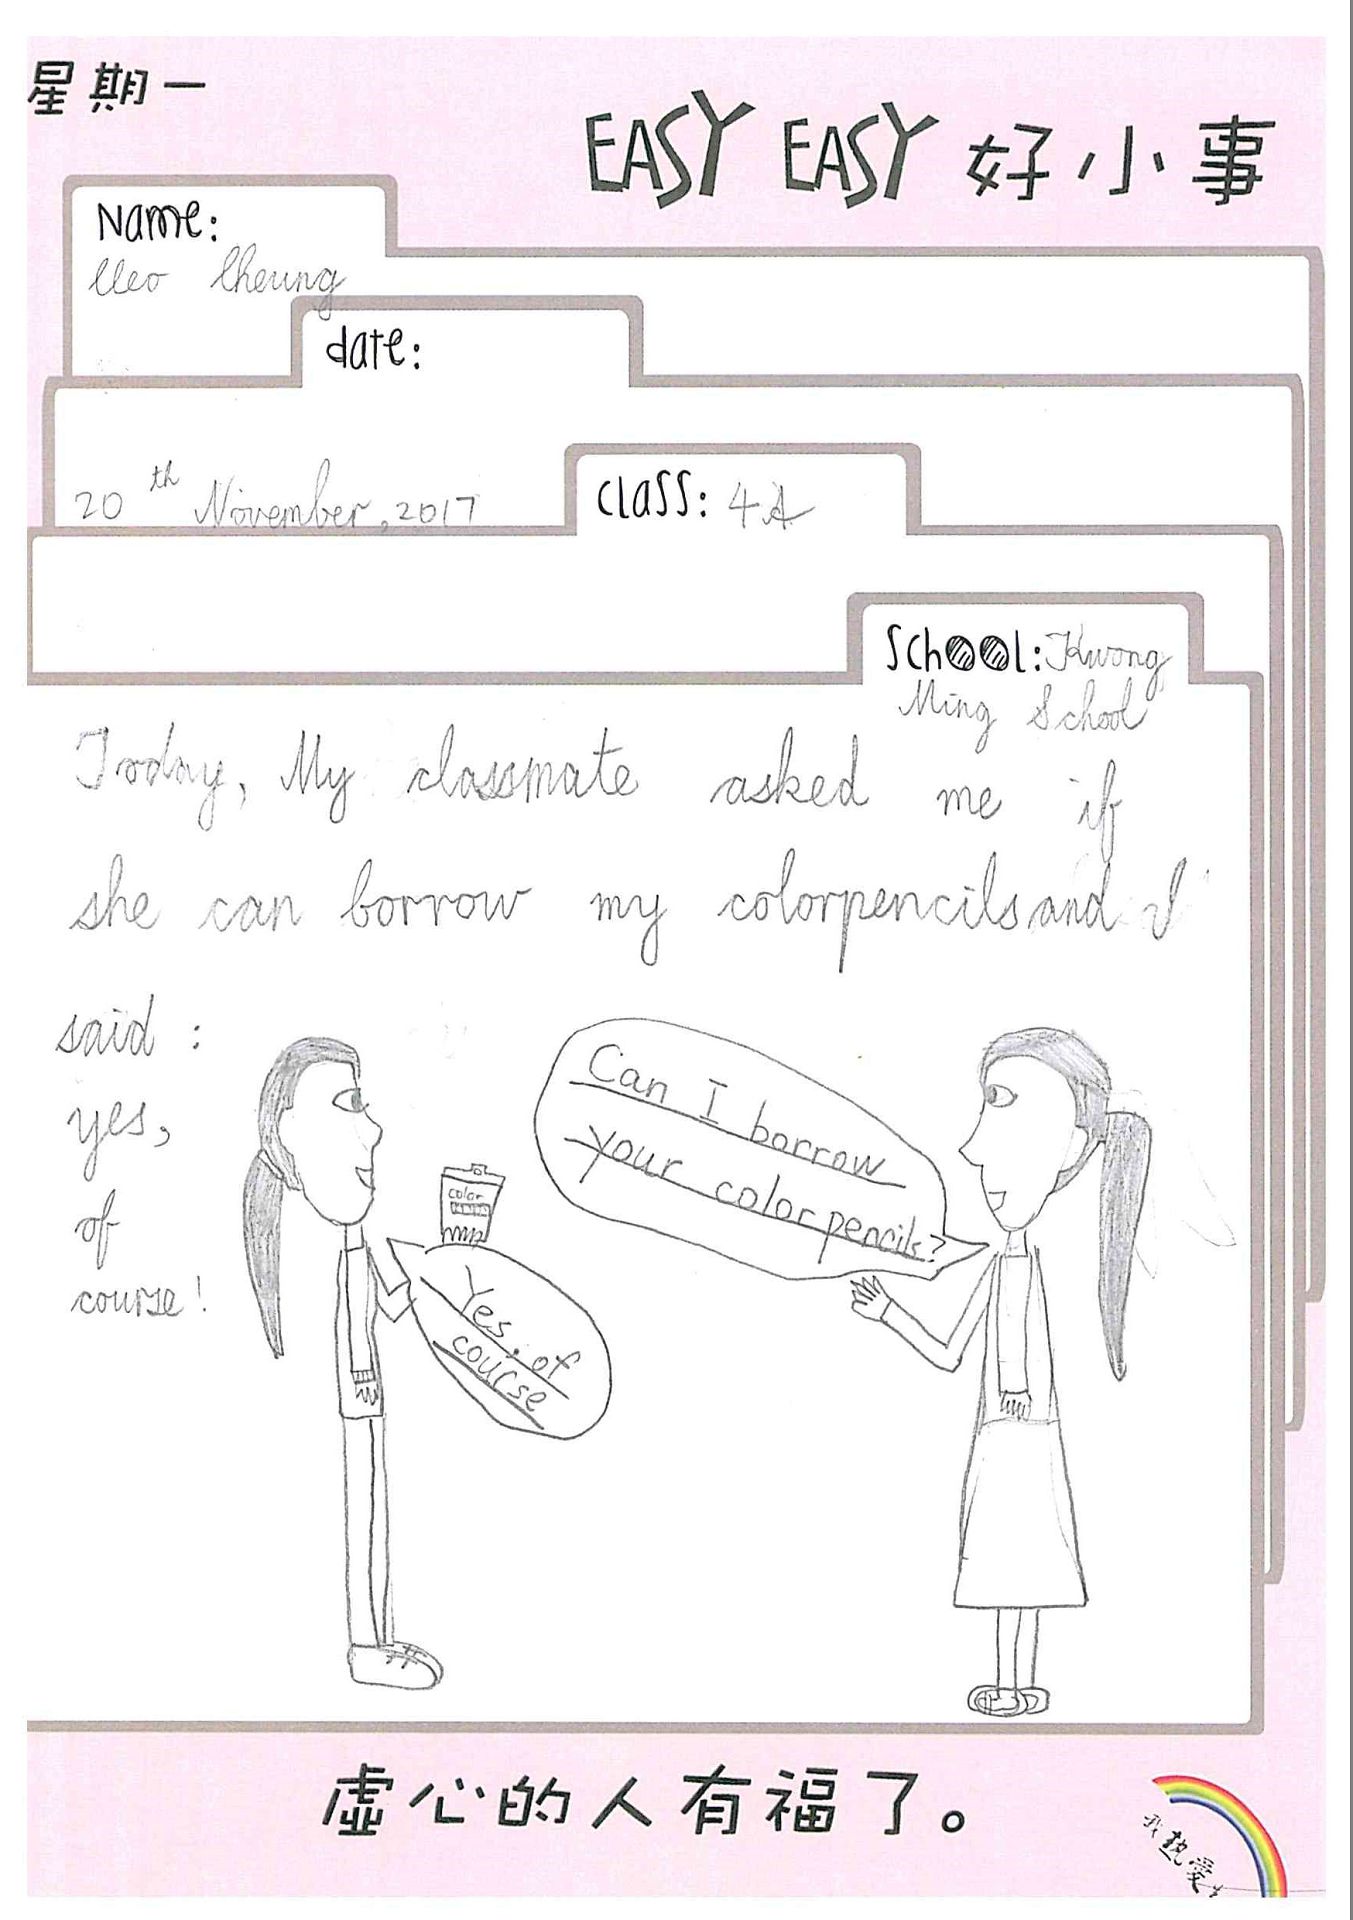 星期一
EASY EASY 好小事
Name:
Cleo Cheung
date:
20th November, 2017
class: 4A
School: Kwong
Ming School
Today, My classmate asked me if
she can borrow my colorpencils and I
said :
yes,
of
course!
Can I borrow
your colorpencils?
color
Yes, of
course
虛心的人有福了。
我熱愛